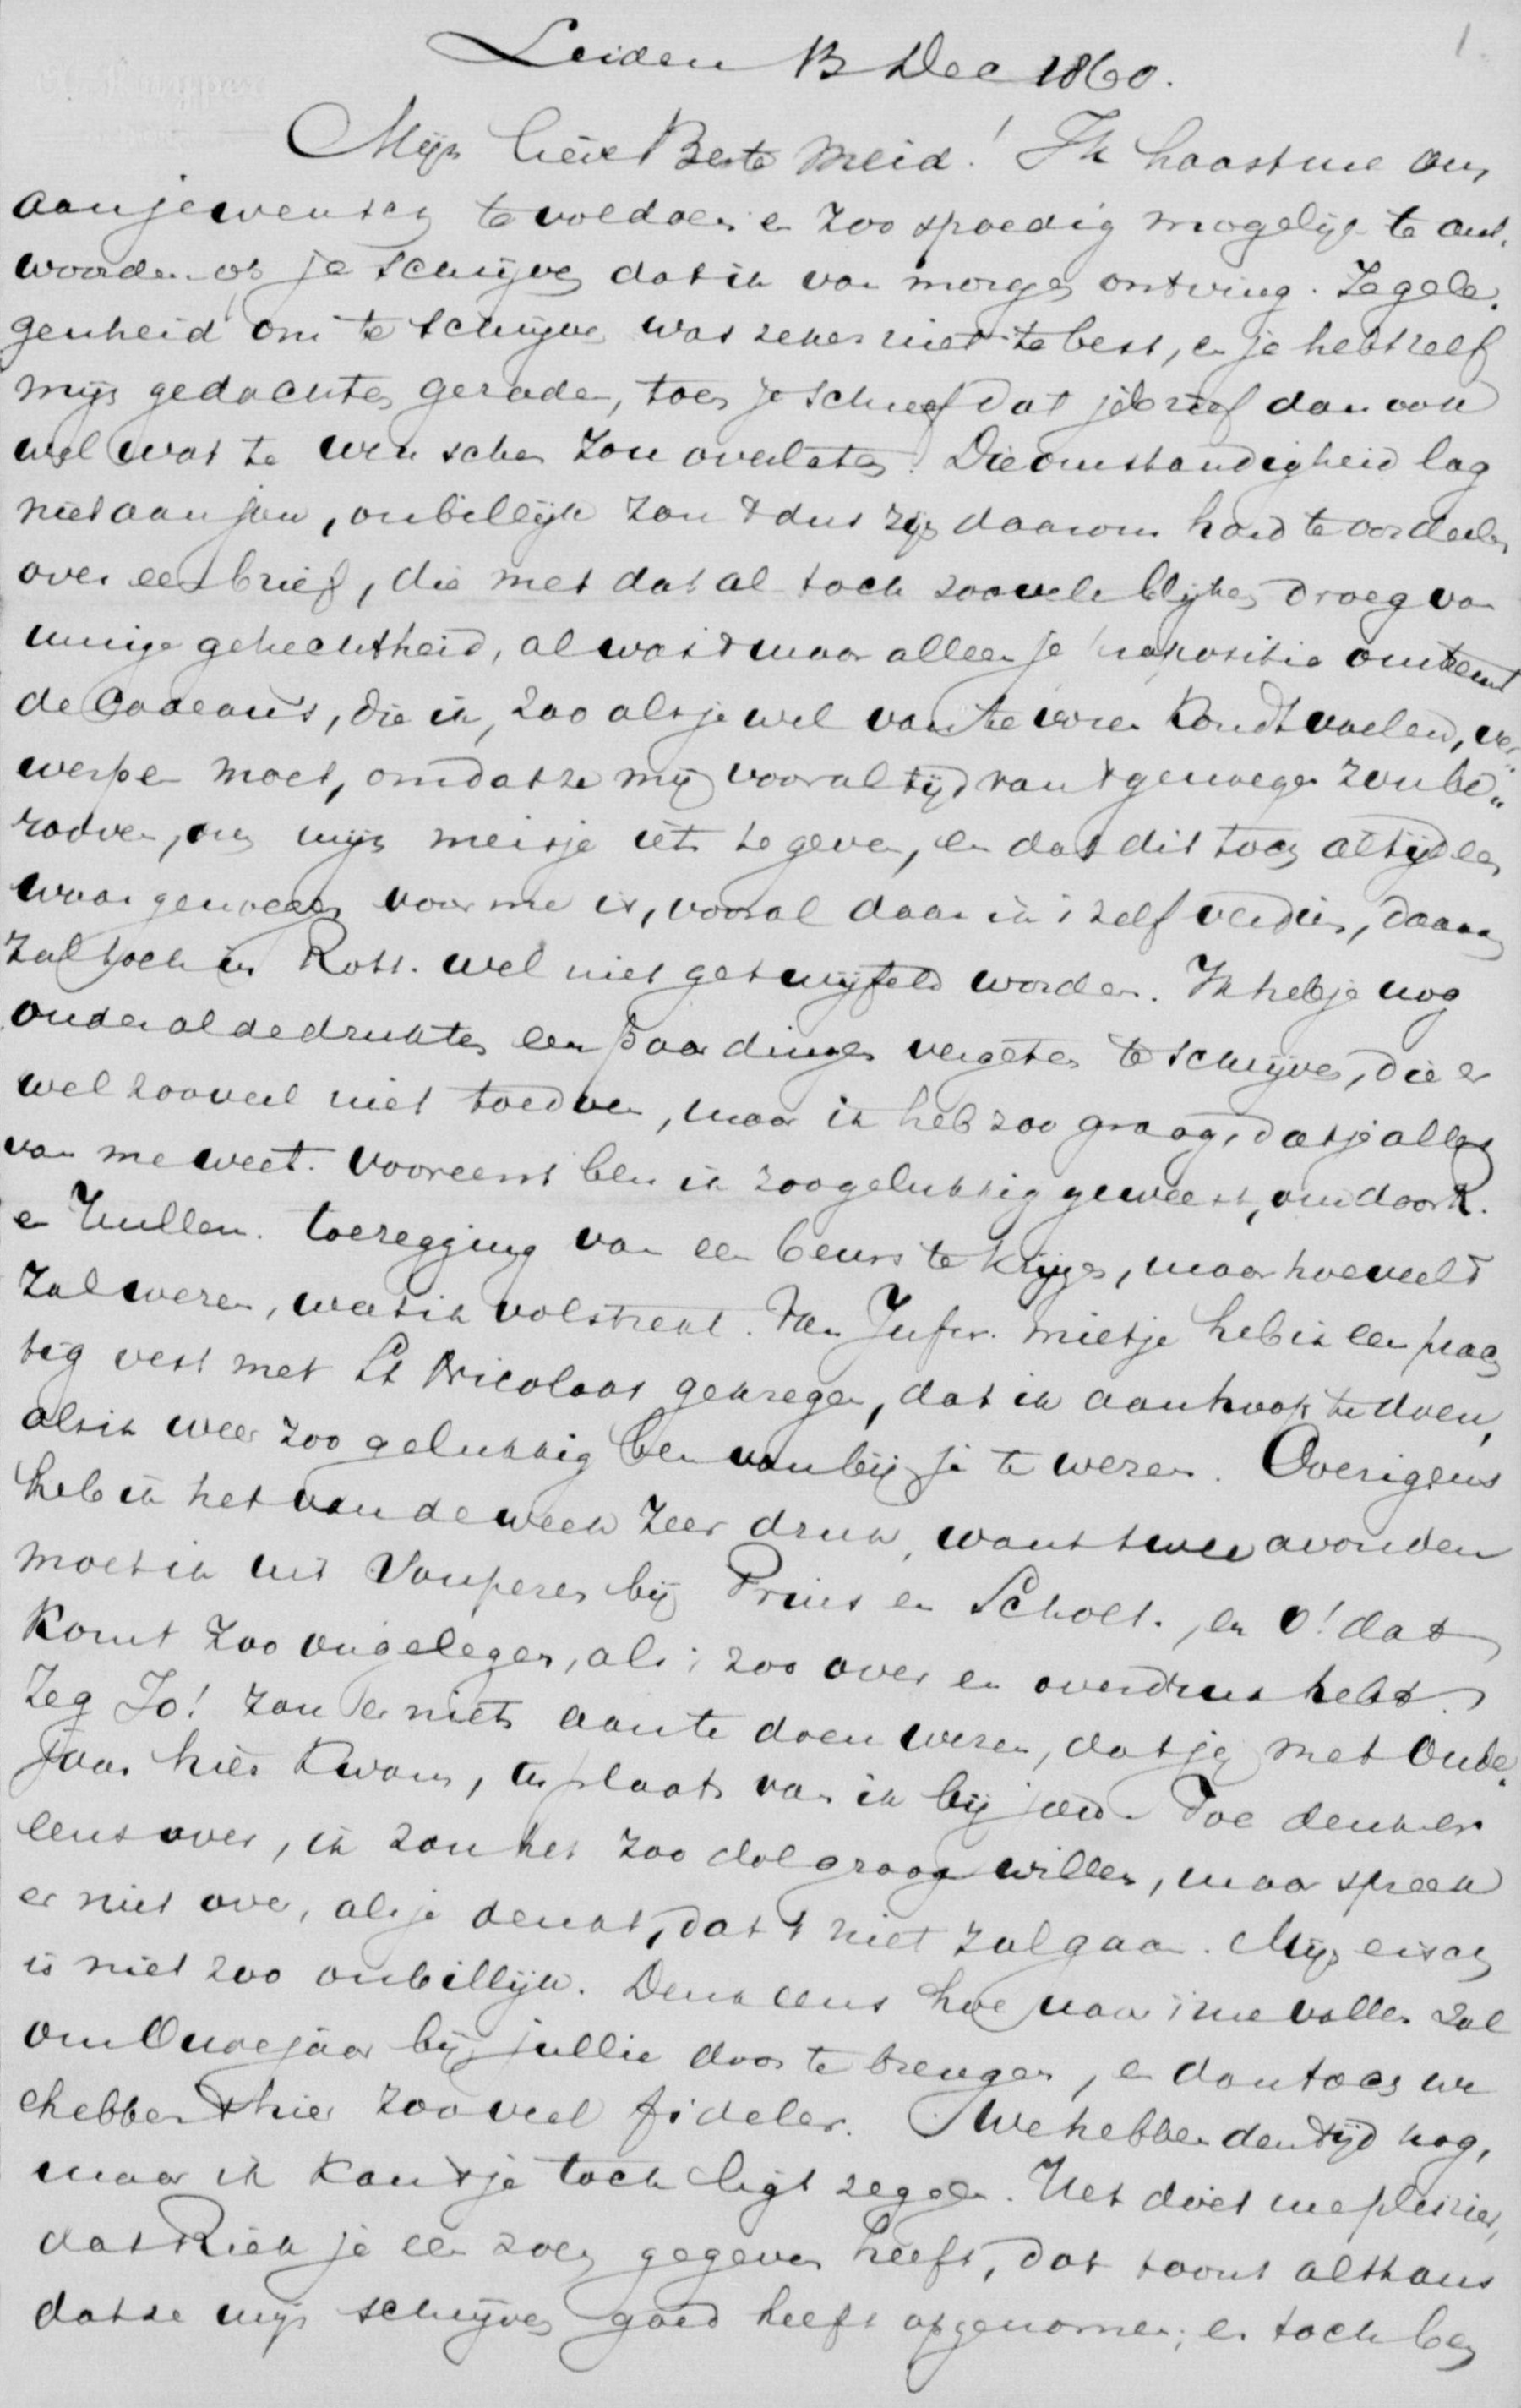 1.
Leiden 13 Dec 1860.
Mijn lieve Beste Meid! Ik haast me om
aan je wensch te voldoen en zoo spoedig mogelijk te ant„
woorden op je schrijven dat ik van morgen ontving. De gele„
genheid om te schrijven was zeker niet te best, en je hebt zelf
mijn gedachten geraden, toen je schreef dat je brief dan ook
wel wat te wenschen zou overlaten. Die omstandigheid lag
niet aan jou, onbillijk zou 't dus zijn daarom hard te oordeelen
over een brief, die met dat al toch zoovele blijken droeg van
innige gehechtheid, al was 't maar alleen je propositie omtrent
de Cadeaus, die ik, zoo als je wel van te voren kondt voelen, ver„
werpen moet, omdat ze mij voor altijd van 't genoegen zou be„
rooven, om mijn meisje iets te geven, en dat dit toch altijd een
waar genoegen voor me is, vooral daar ik 't zelf verdien, daaraan
zal toch in Rott. wel niet getwijfeld worden. Ik heb je nog
onder al de drukten een paar dingen vergeten te schrijven, die er
wel zooveel niet toedoen, maar ik heb zoo graag, dat je alles
van me weet. Vooreerst ben ik zoo gelukkig geweest, om door K.
en toezegging van een beurs te krijgen, maar hoeveel 't
zal wezen, weet ik volstrekt. Van Jufvr. Mietje heb ik een prach
tig vest met St Nicolaas gekregen, dat ik aan hoop te doen,
als ik weer zoo gelukkig ben van bij je te wezen. Overigens
heb ik het van de week zeer druk, want twee avonden
moet ik uit Souperen bij Prins en Scholt., en o! dat
komt zoo ongelegen, als je 't zoo over en overdruk hebt.
Zeg Jo! zou er niets aan te doen wezen, dat je met Oude„
jaar hier kwam, in plaats van ik bij jou. Toe denk er
eens over, ik zou het zoo dolgraag willen, maar spreek
er niet over, als je denkt, dat 't niet zal gaan. Mijn eisch
is niet zoo onbillijk. Denk eens hoe naar 't me vallen zal
om Oudejaar bij jullie door te brengen, en dan toch we
hebben 't hier zooveel fideler. We hebben den tijd nog,
maar ik kan 't je toch ligt zeggen. Het doet me pleizier,
dat Riek je een zoen gegeven heeft, dat toont althans
dat ze mijn schrijven goed heeft opgenomen; en toch ben